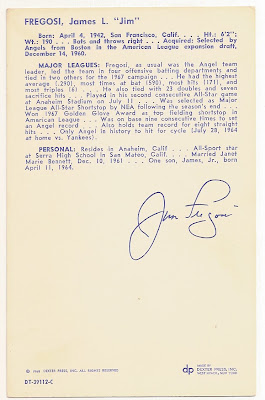 FREGOSI, James L. "Jim"
Born: April 4, 1942, San Francisco, Calif. . . . Ht: 6'2";
Wt: 190 . . . Bats and throws right . . . Acquired: Selected by
Angels from Boston in the American League expansion draft,
December 14, 1960.
MAJOR LEAGUES: Fregosi, as usual was the Angel team
leader, led the team in four offensive batting departments and
tied in two others for the 1967 campaign . . . He had the highest
average (.290), most times at bat (590), most hits (171), and
most triples (6) . . . He also tied with 23 doubles and seven
sacrifice hits . . . Played in his second consecutive All-Star game
at Anaheim Stadium on July 11 . . . Was selected as Major
League All-Star Shortstop by NEA following the season's end . . .
Won 1967 Golden Glove Award as top fielding shortstop in
American League . . . Was on base nine consecutive times to set
an Angel record . . . Also holds team record for eight straight
hits . . . Only Angel in history to hit for cycle (July 28, 1964
at home vs. Yankees).
PERSONAL: Resides in Anaheim, Calif . . . All-Sport star
at Serra High School in San Mateo, Calif. . . . Married Janet
Marie Bennett, Dec. 10, 1961 . . . One son, James, Jr., born
April 11, 1964.
Jim Fregosi
© 1968 DEXTER PRESS, INC. ALL RIGHTS RESERVED
DT-39112-C
dp
MADE BY
DEXTER PRESS, INC.
WEST NYACK, NEW YORK